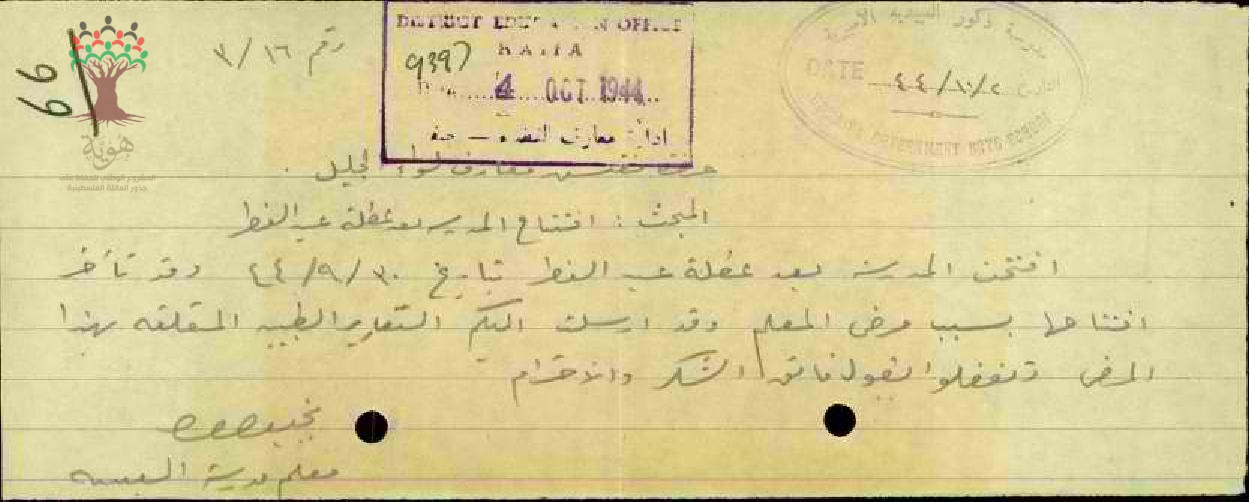 رقم ٣/١٦
66
DISTRICT EDUCATION OFFICE
HAIFA
9397
4 OCT 1944
ادارة معارف اللواء — حيفا
DATE ٤٤/١٠/٢
GOVERNMENT BOYS SCHOOL
هوية
المشروع الوطني للحفاظ على
جذور العائلة الفلسطينية
حضرة مفتش معارف لواء الجليل .
المبحث : افتتاح المدرسة بعد عطلة عيد الفطر
افتتحت المدرسة بعد عطلة عيد الفطر بتاريخ ٤٤/٩/٣٠ وقد تأخر
افتتاحها بسبب مرض المعلم وقد ارسلت اليكم التقارير الطبيه المتعلقه بهذا
المرض وتفضلوا بقبول فائق الشكر والاحترام
معلم مدرسة